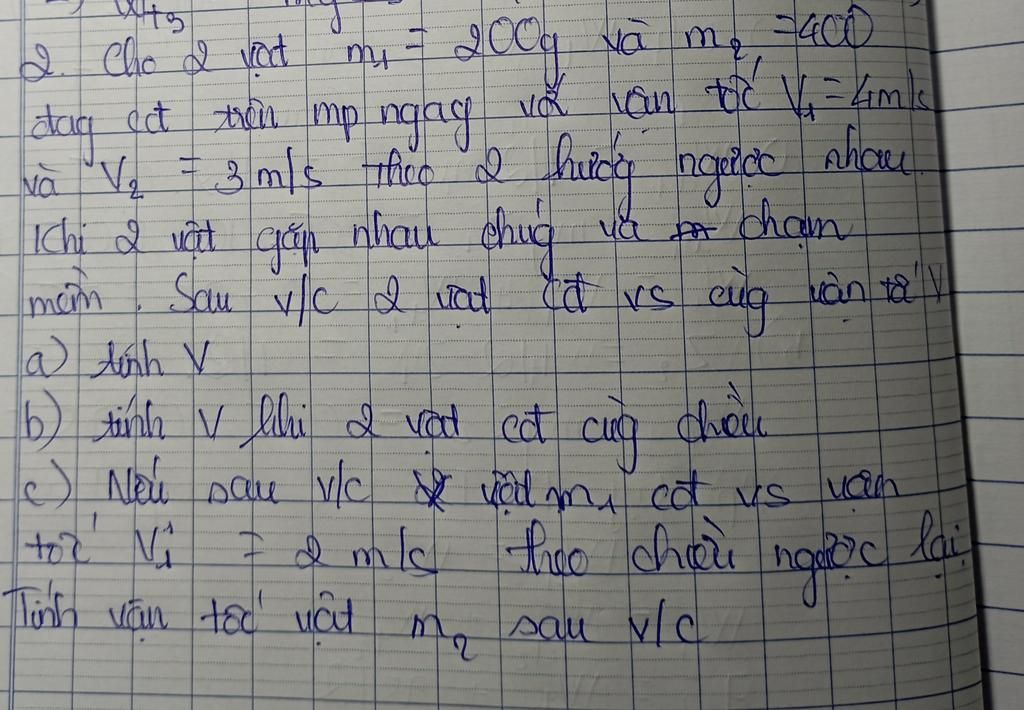 2. Cho 2 vật m₁ = 200g và m₂ = 400
đag cđ trên mp ngag với vân tốc V₁ = 4m/s
và V₂ = 3 m/s theo 2 hướg ngược nhau.
Khi 2 vật gặp nhau chúg va chạm
mềm. Sau v/c 2 vật cđ vs cùg vận tốc V
a) tính V
b) tính V khi 2 vật cđ cùg chiều
c) Nếu sau v/c vật m₁ cđ vs vận
tốc V₁' = 2 m/s theo chiều ngược lại
Tính vận tốc vật m₂ sau v/c